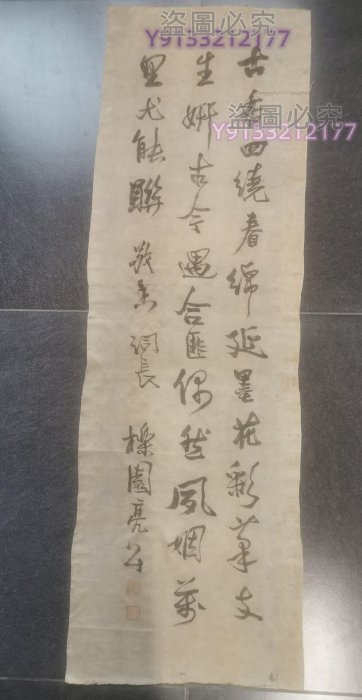 盜圖必究
Y9153212177
盜圖必究
Y9153212177
古香四繞春綿延墨花彩筆文
生妍古今遇合匪偶然夙姻萬
里尤能聯 詞長
櫟園亮